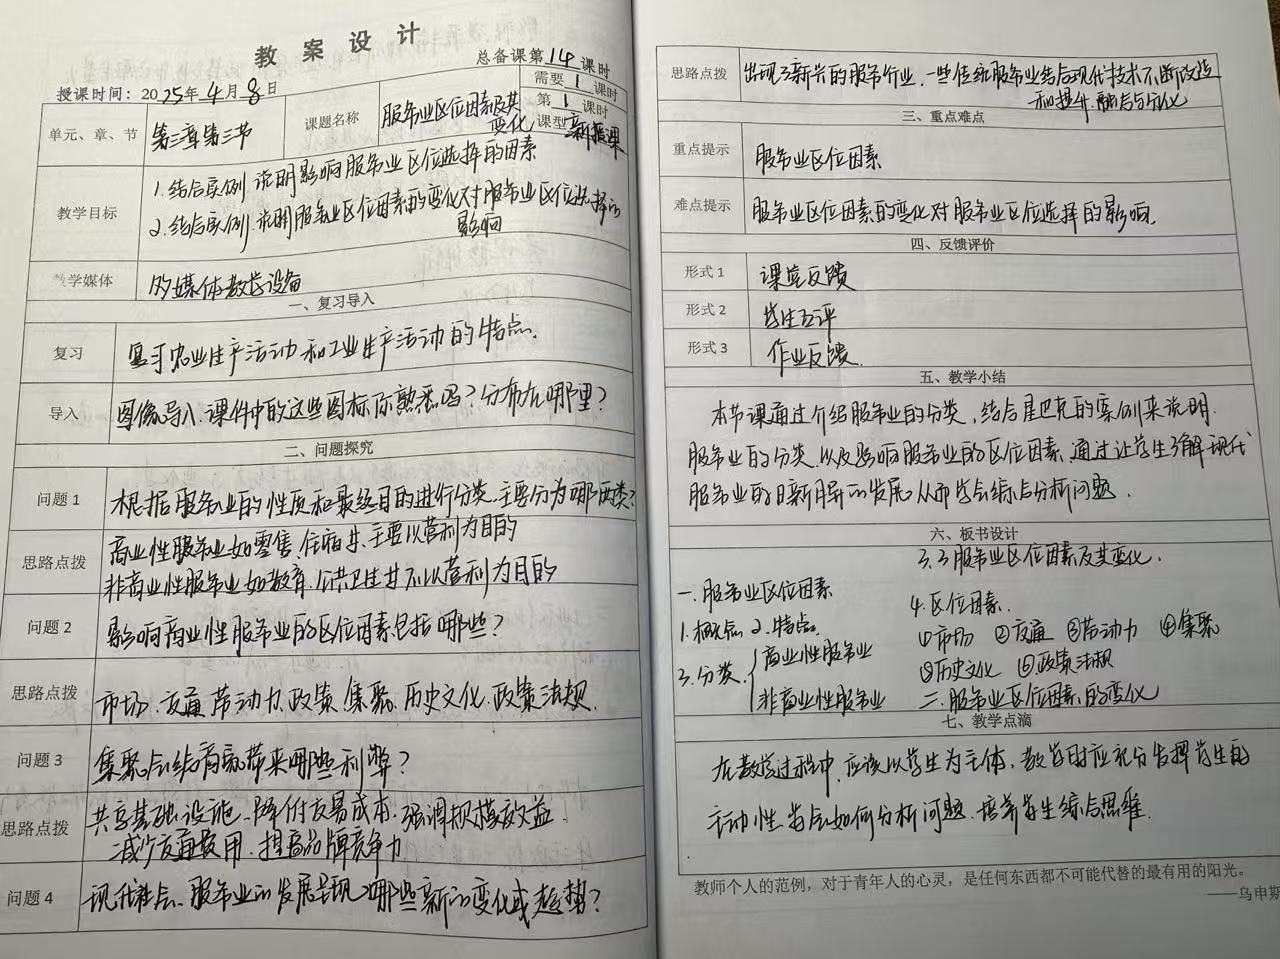 教案设计
总备课第14课时
授课时间：2025年4月8日
需要1课时
第1课时
单元、章、节 第三章第三节
课题名称 服务业区位因素及其变化
课型 新授课
教学目标
1.结合实例,说明影响服务业区位选择的因素
2.结合实例.说明服务业区位因素的变化对服务业区位选择的
影响
教学媒体 多媒体教学设备
一、复习导入
复习 复习农业生产活动和工业生产活动的特点.
导入 图像导入.课件中的这些图标你熟悉吗?分布在哪里?
二、问题探究
问题1 根据服务业的性质和最终目的进行分类.主要分为哪两类?
思路点拨 商业性服务业如零售.住宿等.主要以营利为目的
非商业性服务业如教育.公共卫生等不以营利为目的
问题2 影响商业性服务业的区位因素包括哪些?
思路点拨 市场.交通.劳动力.政策.集聚.历史文化.政策法规.
问题3 集聚会给商家带来哪些利弊?
思路点拨 共享基础设施.降低交易成本.强调规模效益.
减少交通费用.提高品牌竞争力
问题4 现代社会.服务业的发展呈现哪些新的变化或趋势?
思路点拨 出现了新兴的服务行业.一些传统服务业结合现代技术不断改造
和提升.融合与分化
三、重点难点
重点提示 服务业区位因素
难点提示 服务业区位因素的变化对服务业区位选择的影响.
四、反馈评价
形式1 课堂反馈
形式2 学生互评
形式3 作业反馈.
五、教学小结
本节课通过介绍服务业的分类,结合星巴克的案例来说明.
服务业的分类.以及影响服务业的区位因素.通过让学生了解现代
服务业的日新月异的发展.从而学会综合分析问题.
六、板书设计
3.3服务业区位因素及其变化.
一.服务业区位因素
1.概念 2.特点.
3.分类.
商业性服务业
非商业性服务业
4.区位因素.
①市场 ②交通 ③劳动力 ④集聚
⑤历史文化 ⑥政策法规
二.服务业区位因素的变化
七、教学点滴
在教学过程中.应该以学生为主体.教学时应充分发挥学生的
主动性.学会如何分析问题.培养学生综合思维.
教师个人的范例，对于青年人的心灵，是任何东西都不可能代替的最有用的阳光。
——乌申斯